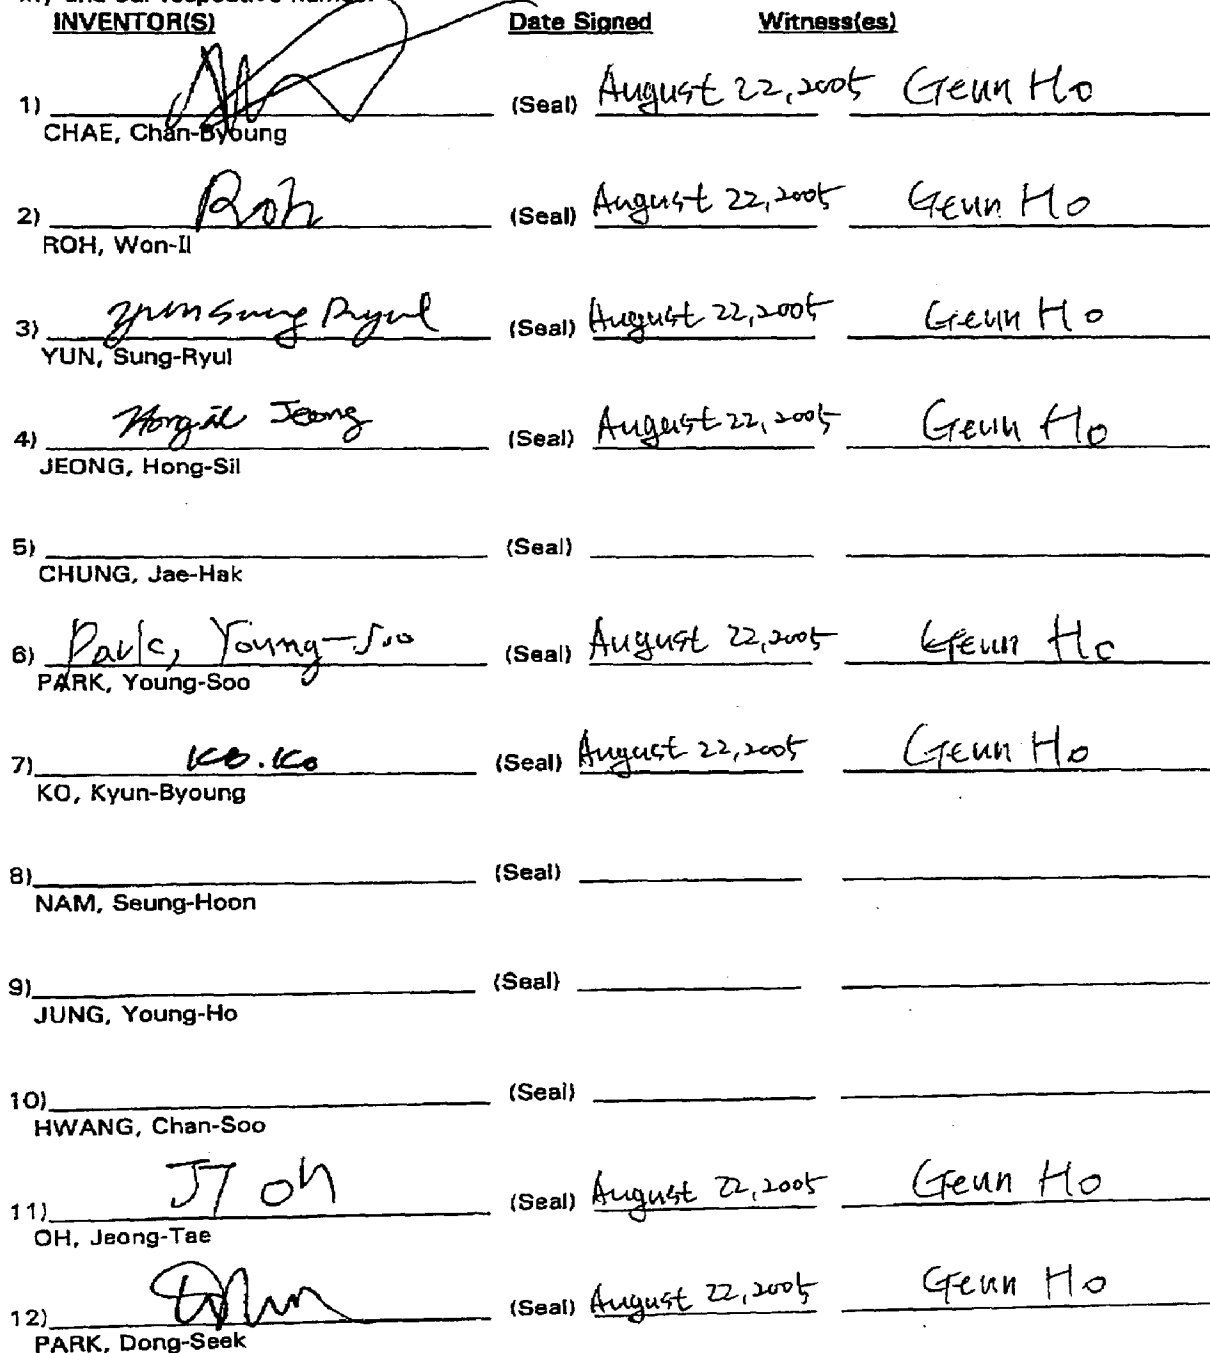 and our respective names.
INVENTOR(S) Date Signed Witness(es)
1) (Seal) August 22, 2005 Geun Ho
CHAE, Chan-Byoung
2) Roh (Seal) August 22, 2005 Geun Ho
ROH, Won-Il
3) Yun Sung Ryul (Seal) August 22, 2005 Geun Ho
YUN, Sung-Ryul
4) Hongsil Jeong (Seal) August 22, 2005 Geun Ho
JEONG, Hong-Sil
5) (Seal)
CHUNG, Jae-Hak
6) Park, Young-Soo (Seal) August 22, 2005 Geun Ho
PARK, Young-Soo
7) KB. Ko (Seal) August 22, 2005 Geun Ho
KO, Kyun-Byoung
8) (Seal)
NAM, Seung-Hoon
9) (Seal)
JUNG, Young-Ho
10) (Seal)
HWANG, Chan-Soo
11) JT Oh (Seal) August 22, 2005 Geun Ho
OH, Jeong-Tae
12) (Seal) August 22, 2005 Geun Ho
PARK, Dong-Seek